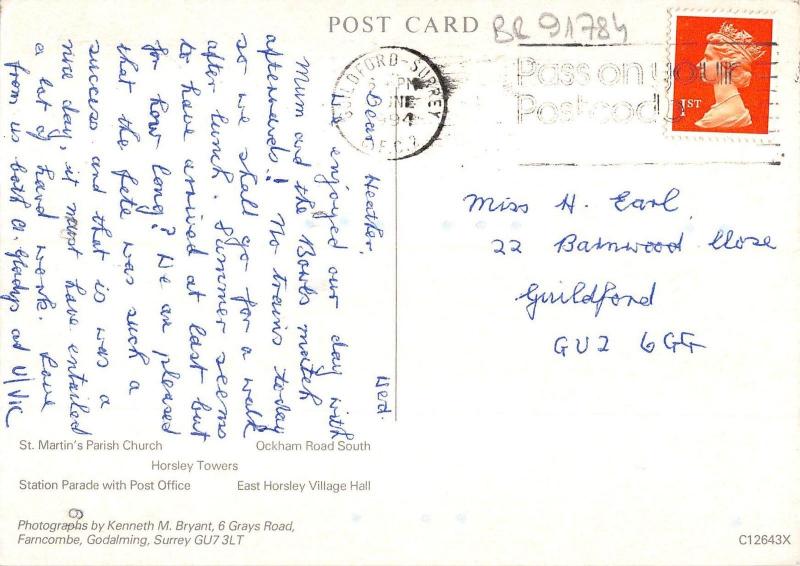 POST CARD
BR 91784
GUILDFORD-SURREY
PM
UNE
1994
Pass on your
Postcode
1ST
Wed.
Dear Heather,
We enjoyed our day with
Mum and the Bowls match
afterwards! No trains today
so we shall go for a walk
after lunch. Summer seems
to have arrived at last but
for how long? We are pleased
that the fete was such a
success and that is was a
nice day, it must have entailed
a lot of hard work. Love
from us both A. Gladys at
Miss H. Earl,
22 Barnwood Close
Guildford
GU2 6GG
St. Martin's Parish Church
Ockham Road South
Horsley Towers
Station Parade with Post Office
East Horsley Village Hall
Photographs by Kenneth M. Bryant, 6 Grays Road,
Farncombe, Godalming, Surrey GU7 3LT
C12643X